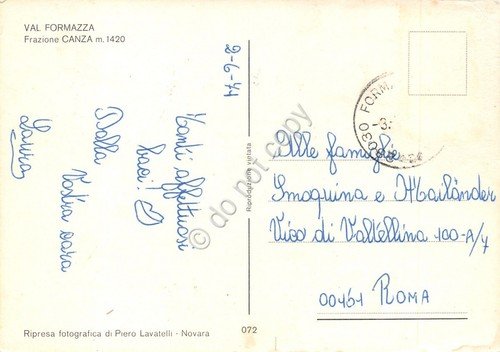 VAL FORMAZZA
Frazione CANZA m. 1420
2-6-74
Tanti affettuosi
baci!
Dalla
Vostra cara
Laura
Riproduzione vietata
do not copy
8030 FORM
-3.
Alle famiglie
Smoquina e Mailänder
Vico di Valtellina 100-A/7
00151 ROMA
Ripresa fotografica di Piero Lavatelli - Novara
072